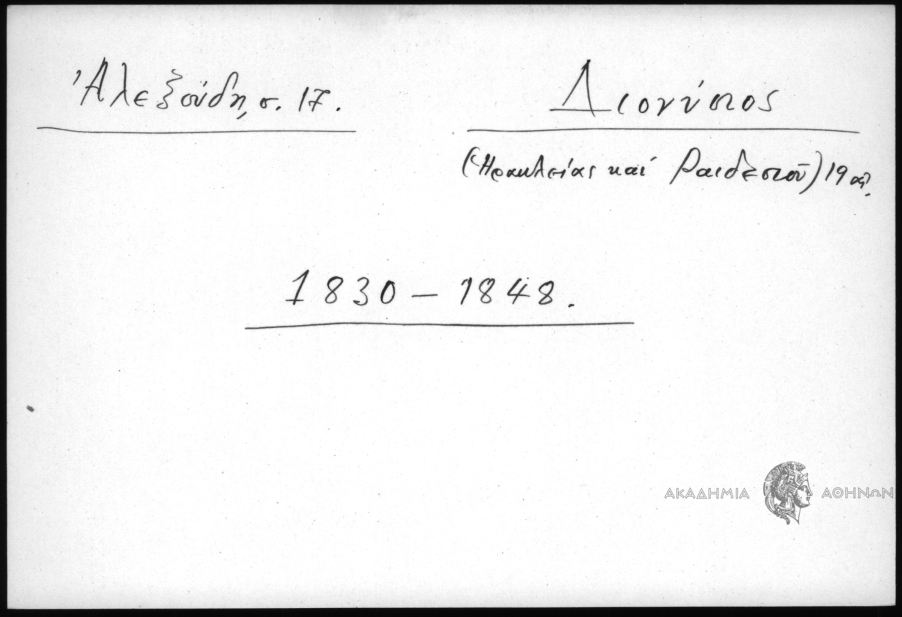 Ἀλεξούδη, σ. 17.
Διονύσιος
(Ἡρακλείας καί Ραιδεστοῦ) 19 αἰ.
1830 – 1848.
ΑΚΑΔΗΜΙΑ ΑΘΗΝΩΝ